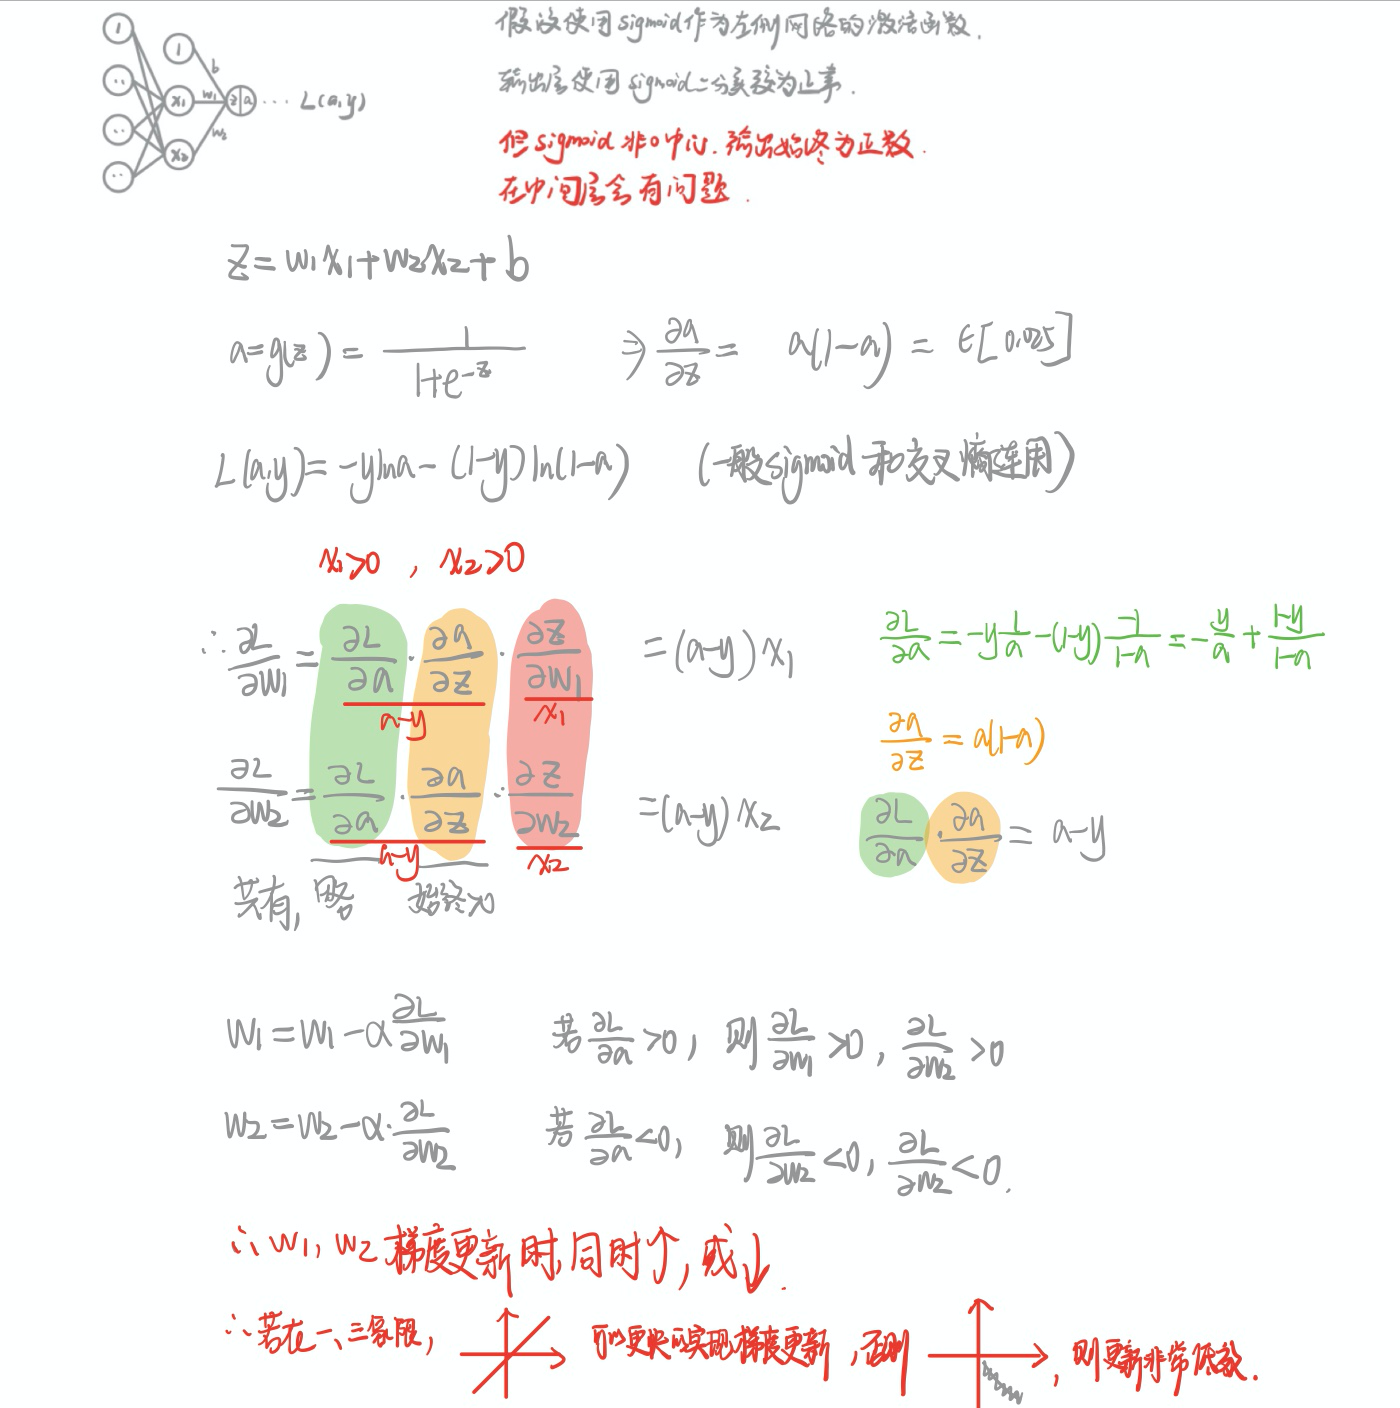 假设使用sigmoid作为左侧网络的激活函数.
输出层使用sigmoid二分类较为正事.
但sigmoid非0中心.输出始终为正数.
在中间层会有问题.
1
··
··
··
1
x₁
x₂
b
w₁
w₂
z|a ··· L(a,y)
z=w₁x₁+w₂x₂+b
a=g(z)=1/(1+e^{-z}) ⇒ ∂a/∂z = a(1-a) = ∈[0,0.25]
L(a,y)=-ylna-(1-y)ln(1-a) (一般sigmoid和交叉熵连用)
x₁>0 , x₂>0
∴ ∂L/∂w₁ = ∂L/∂a · ∂a/∂z · ∂z/∂w₁ =(a-y)x₁
a-y x₁
∂L/∂w₂ = ∂L/∂a · ∂a/∂z · ∂z/∂w₂ =(a-y)x₂
a-y x₂
共有,略 始终>0
∂L/∂a = -y 1/a -(1-y) -1/(1-a) = -y/a + (1-y)/(1-a)
∂a/∂z = a(1-a)
∂L/∂a · ∂a/∂z = a-y
w₁=w₁-α ∂L/∂w₁ 若 ∂L/∂a >0, 则 ∂L/∂w₁ >0, ∂L/∂w₂ >0
w₂=w₂-α· ∂L/∂w₂ 若 ∂L/∂a <0, 则 ∂L/∂w₂ <0, ∂L/∂w₂ <0.
∴ w₁, w₂ 梯度更新时,同时个,或↓.
∴ 若在一、三象限, 可以更快的实现梯度更新, 否则 , 则更新非常低效.